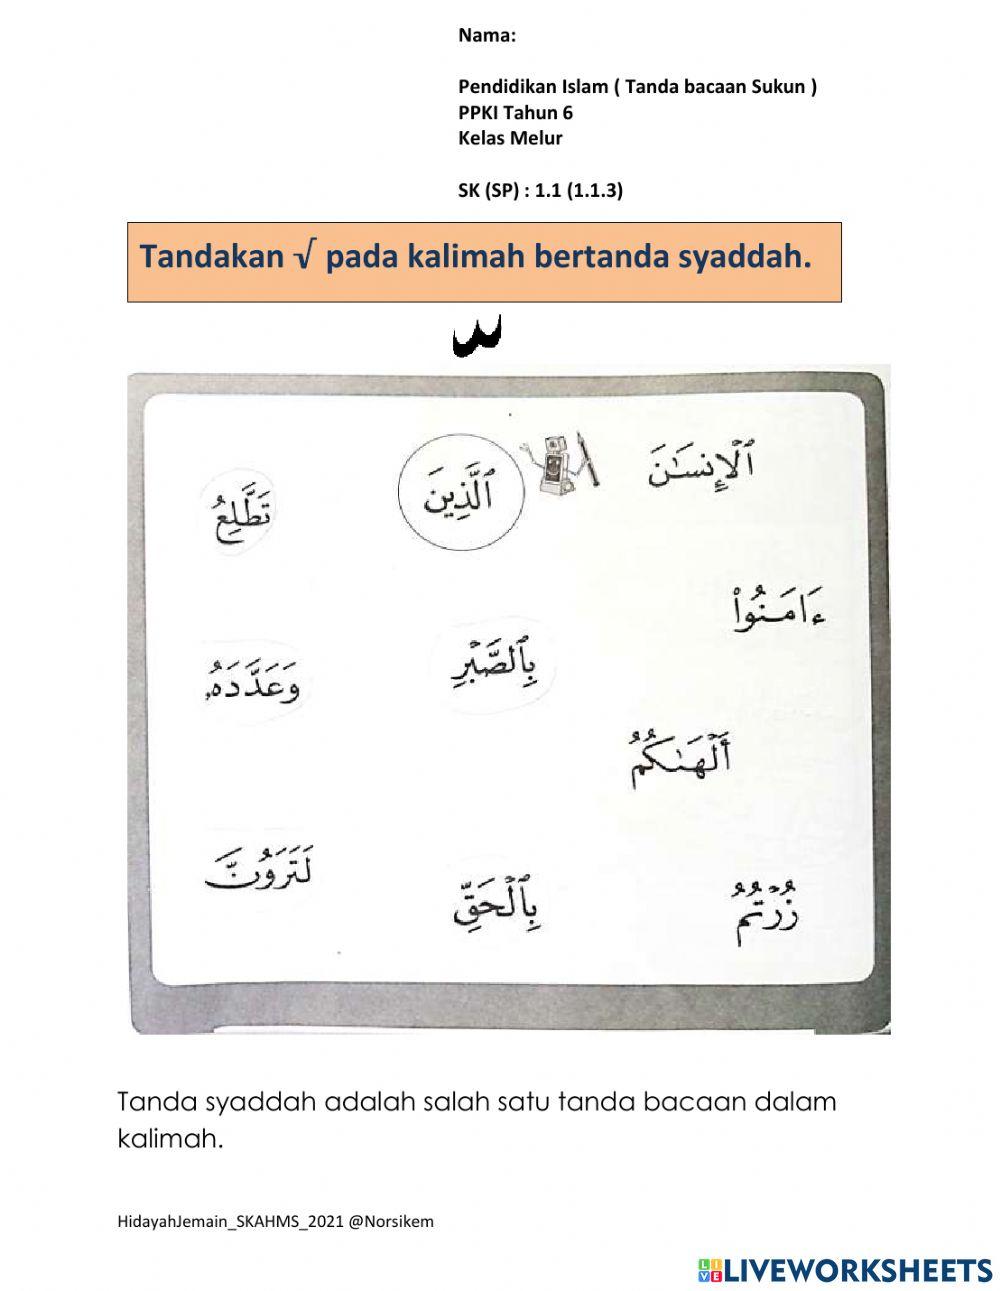 Nama:
Pendidikan Islam ( Tanda bacaan Sukun )
PPKI Tahun 6
Kelas Melur
SK (SP) : 1.1 (1.1.3)
Tandakan √ pada kalimah bertanda syaddah.
ٱلْإِنسَـٰنَ
ٱلَّذِينَ
تَطَّلِعُ
ءَامَنُواْ
بِٱلصَّبْرِ
وَعَدَّدَهُۥ
أَلْهَىٰكُمُ
لَتَرَوُنَّ
بِٱلْحَقِّ
زُرْتُمُ
Tanda syaddah adalah salah satu tanda bacaan dalam
kalimah.
HidayahJemain_SKAHMS_2021 @Norsikem
LIVEWORKSHEETS